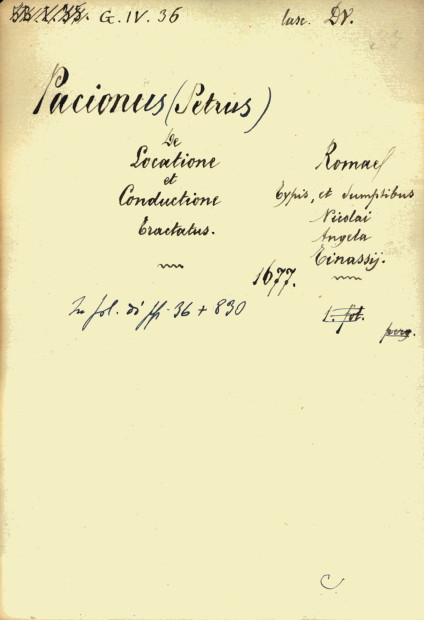 G. IV. 36
Pacionus (Petrus)
De
Locatione
et
Conductione
Tractatus.
Romae
Typis, et Sumptibus
Nicolai
Angela
Tinassij.
1677.
In fol. di ff. 36 + 830
1. fol.
perg.